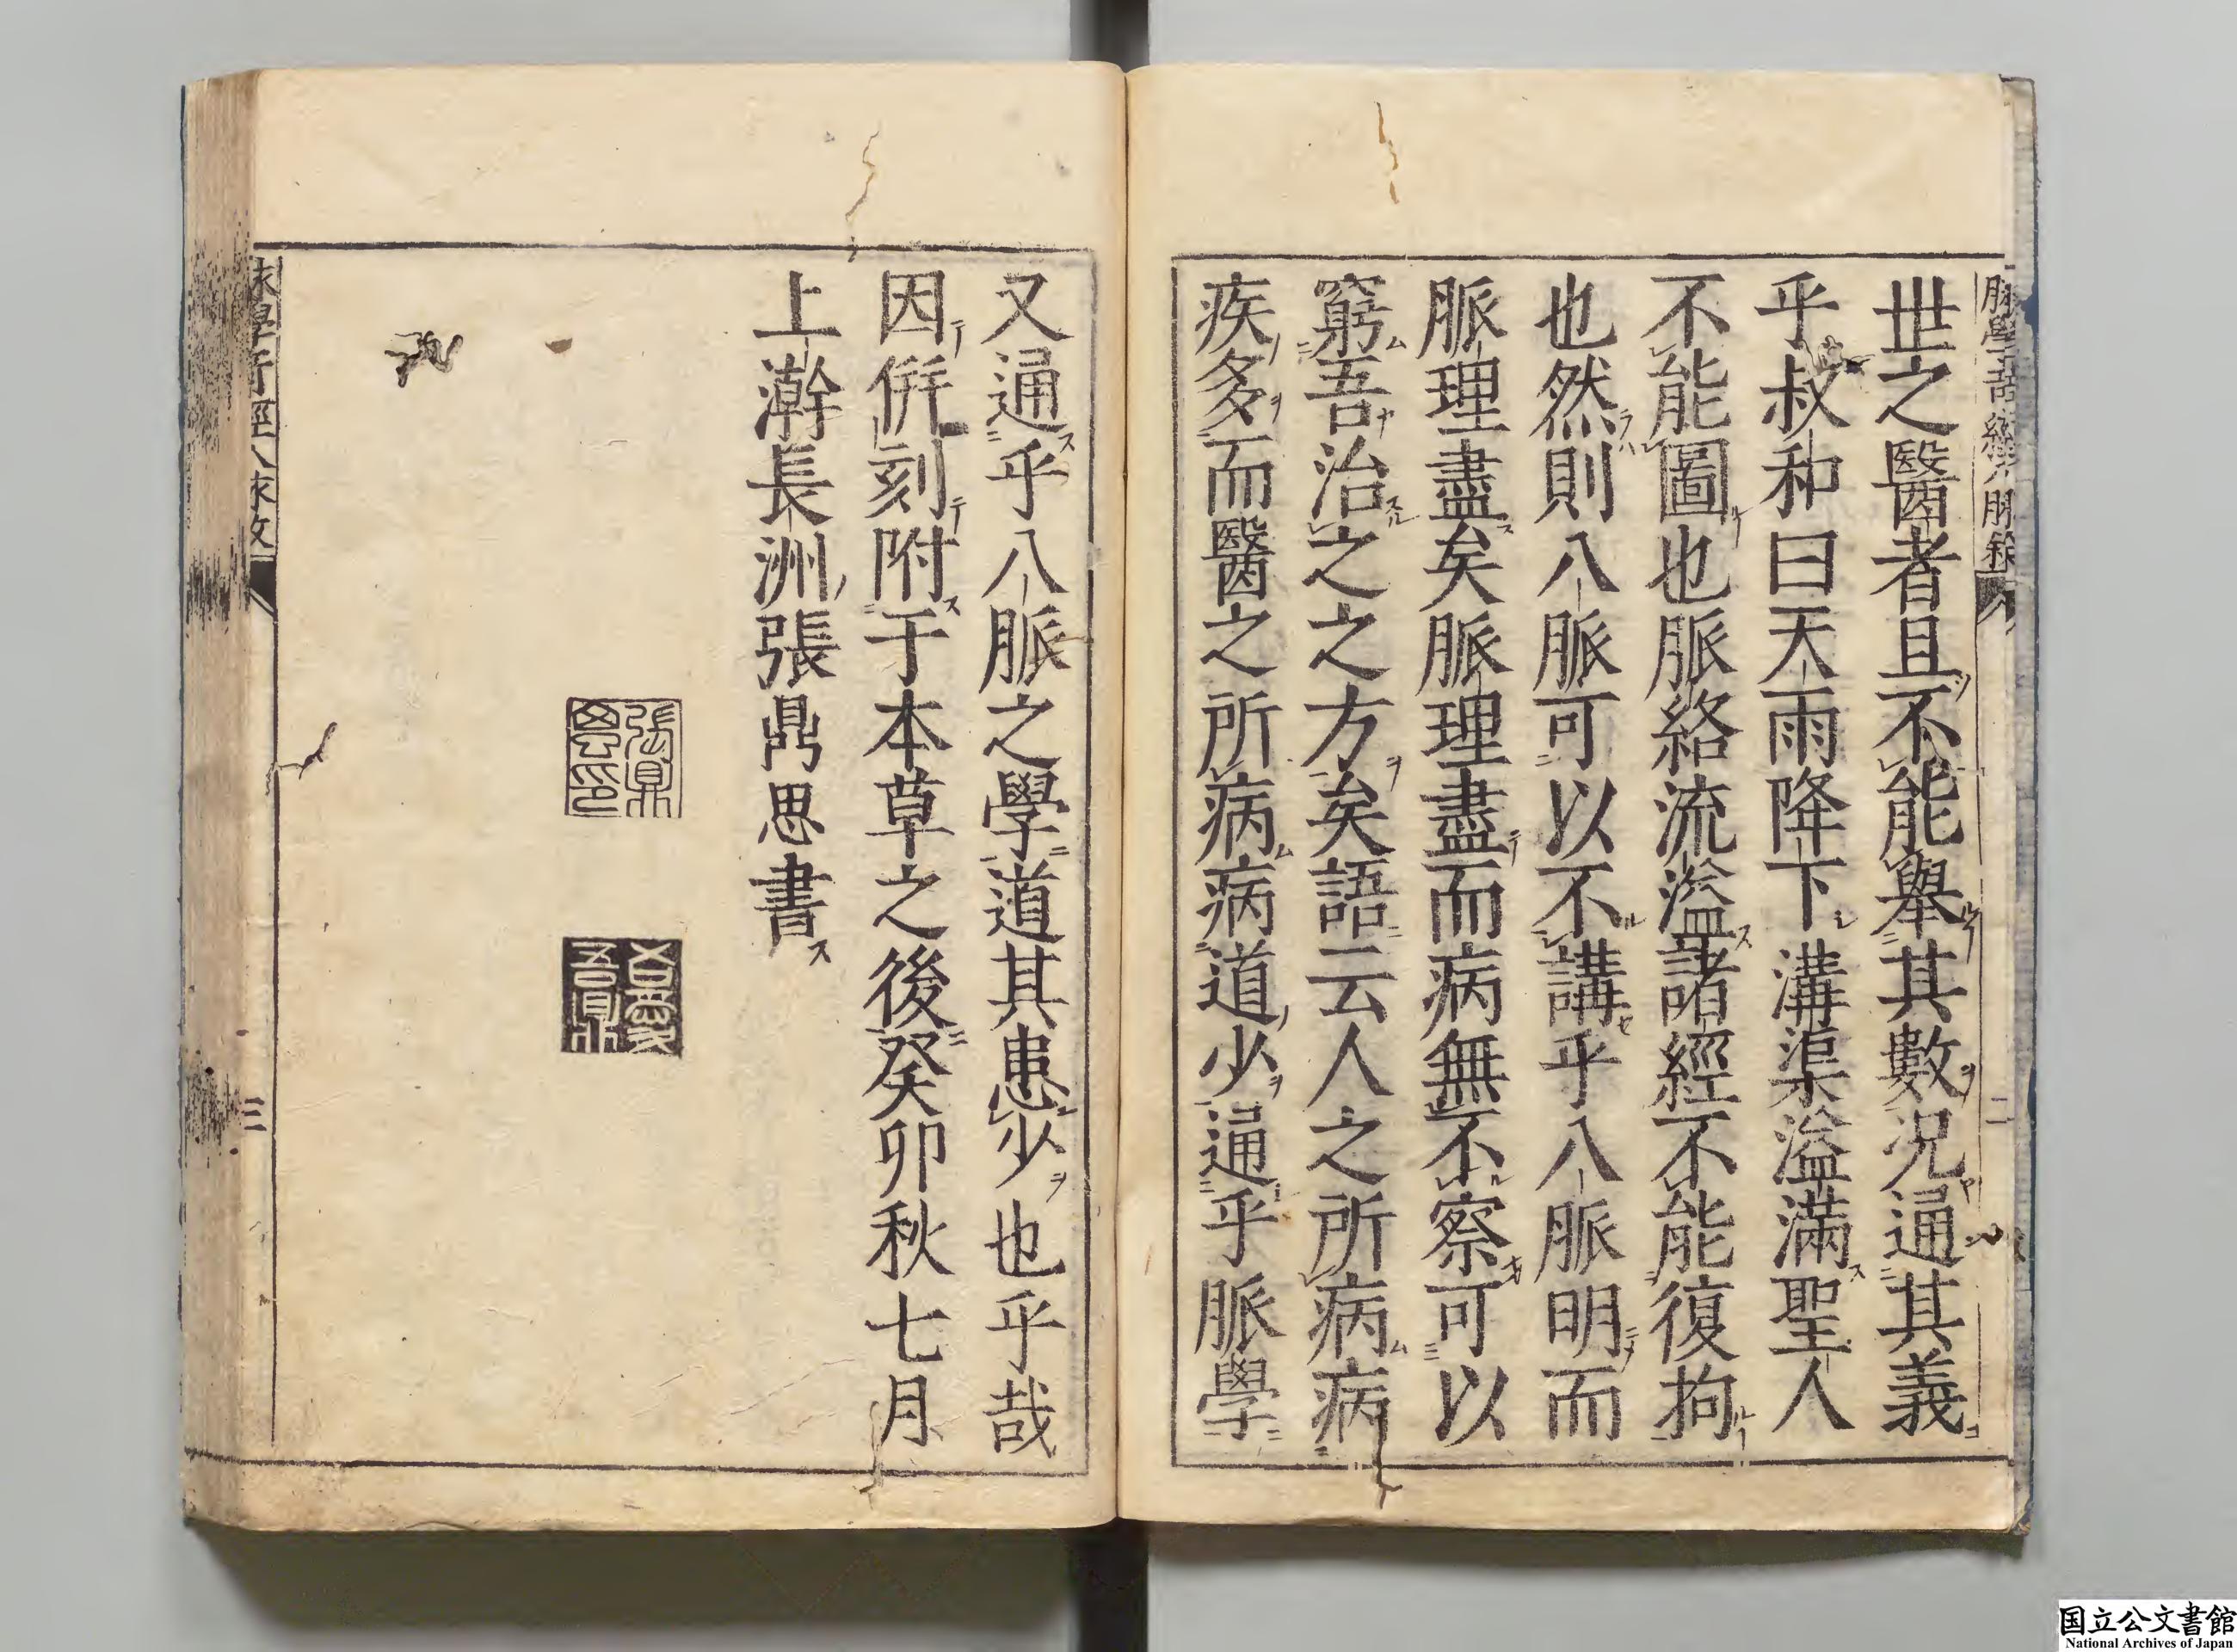 世之醫者且不能舉其數況通其義
乎叔和曰天雨降下溝渠溢滿聖人
不能圖也脈絡流溢諸經不能復拘
也然則八脈可以不講乎八脈明而
脈理盡矣脈理盡而病無不察可以
窮吾治之之方矣語云人之所病病
疾多而醫之所病病道少通乎脈學
又通乎八脈之學道其患少也乎哉
因併刻附于本草之後癸卯秋七月
上澣長洲張鼎思書
張鼎
思印
三
国立公文書館
National Archives of Japan